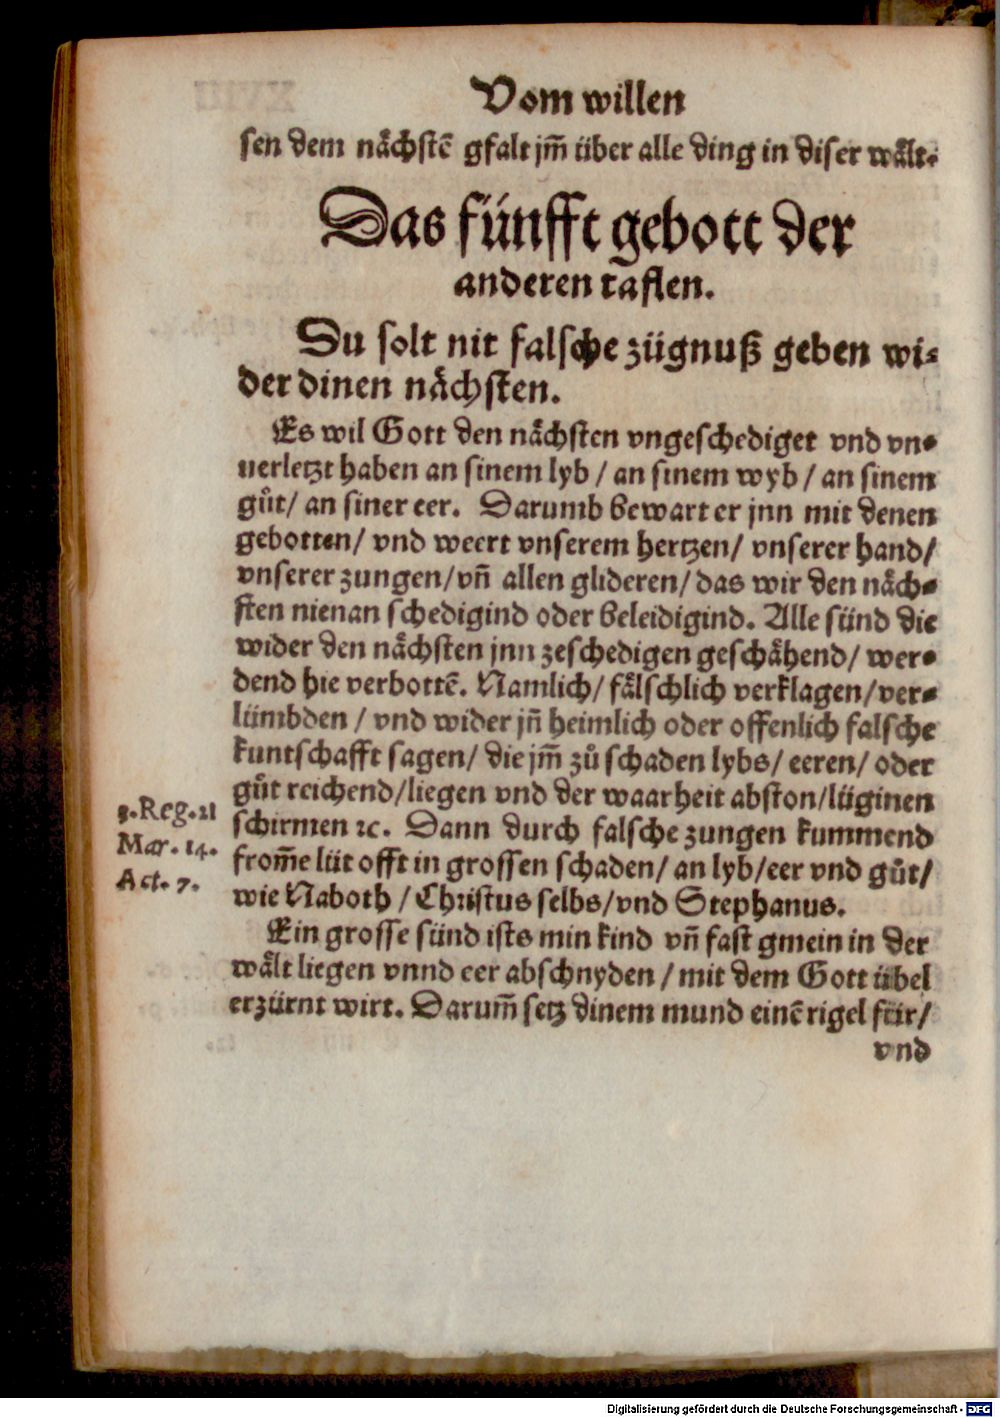 Vom willen
sen dem nächstē gfalt jm̄ über alle ding in diser wält.
Das fünfft gebott der
anderen taflen.
Du solt nit falsche zügnuß geben wi-
der dinen nächsten.
Es wil Gott den nächsten vngeschediget vnd vn-
uerletzt haben an sinem lyb / an sinem wyb / an sinem
gůt / an siner eer. Darumb bewart er jnn mit denen
gebotten / vnd weert vnserem hertzen / vnserer hand /
vnserer zungen / vn̄ allen glideren / das wir den näch-
sten nienan schedigind oder beleidigind. Alle sünd die
wider den nächsten jnn zeschedigen geschähend / wer-
dend hie verbottē. Namlich / fälschlich verklagen / ver-
lümbden / vnd wider jn̄ heimlich oder offenlich falsche
kuntschafft sagen / die jm̄ zů schaden lybs / eeren / oder
gůt reichend / liegen vnd der waarheit abston / lüginen
schirmen ꝛc. Dann durch falsche zungen kummend
from̄e lüt offt in grossen schaden / an lyb / eer vnd gůt /
wie Naboth / Christus selbs / vnd Stephanus.
3. Reg. 21
Mar. 14.
Act. 7.
Ein grosse sünd ists min kind vn̄ fast gmein in der
wält liegen vnnd eer abschnyden / mit dem Gott übel
erzürnt wirt. Darum̄ setz dinem mund einē rigel für /
vnd
Digitalisierung gefördert durch die Deutsche Forschungsgemeinschaft - DFG